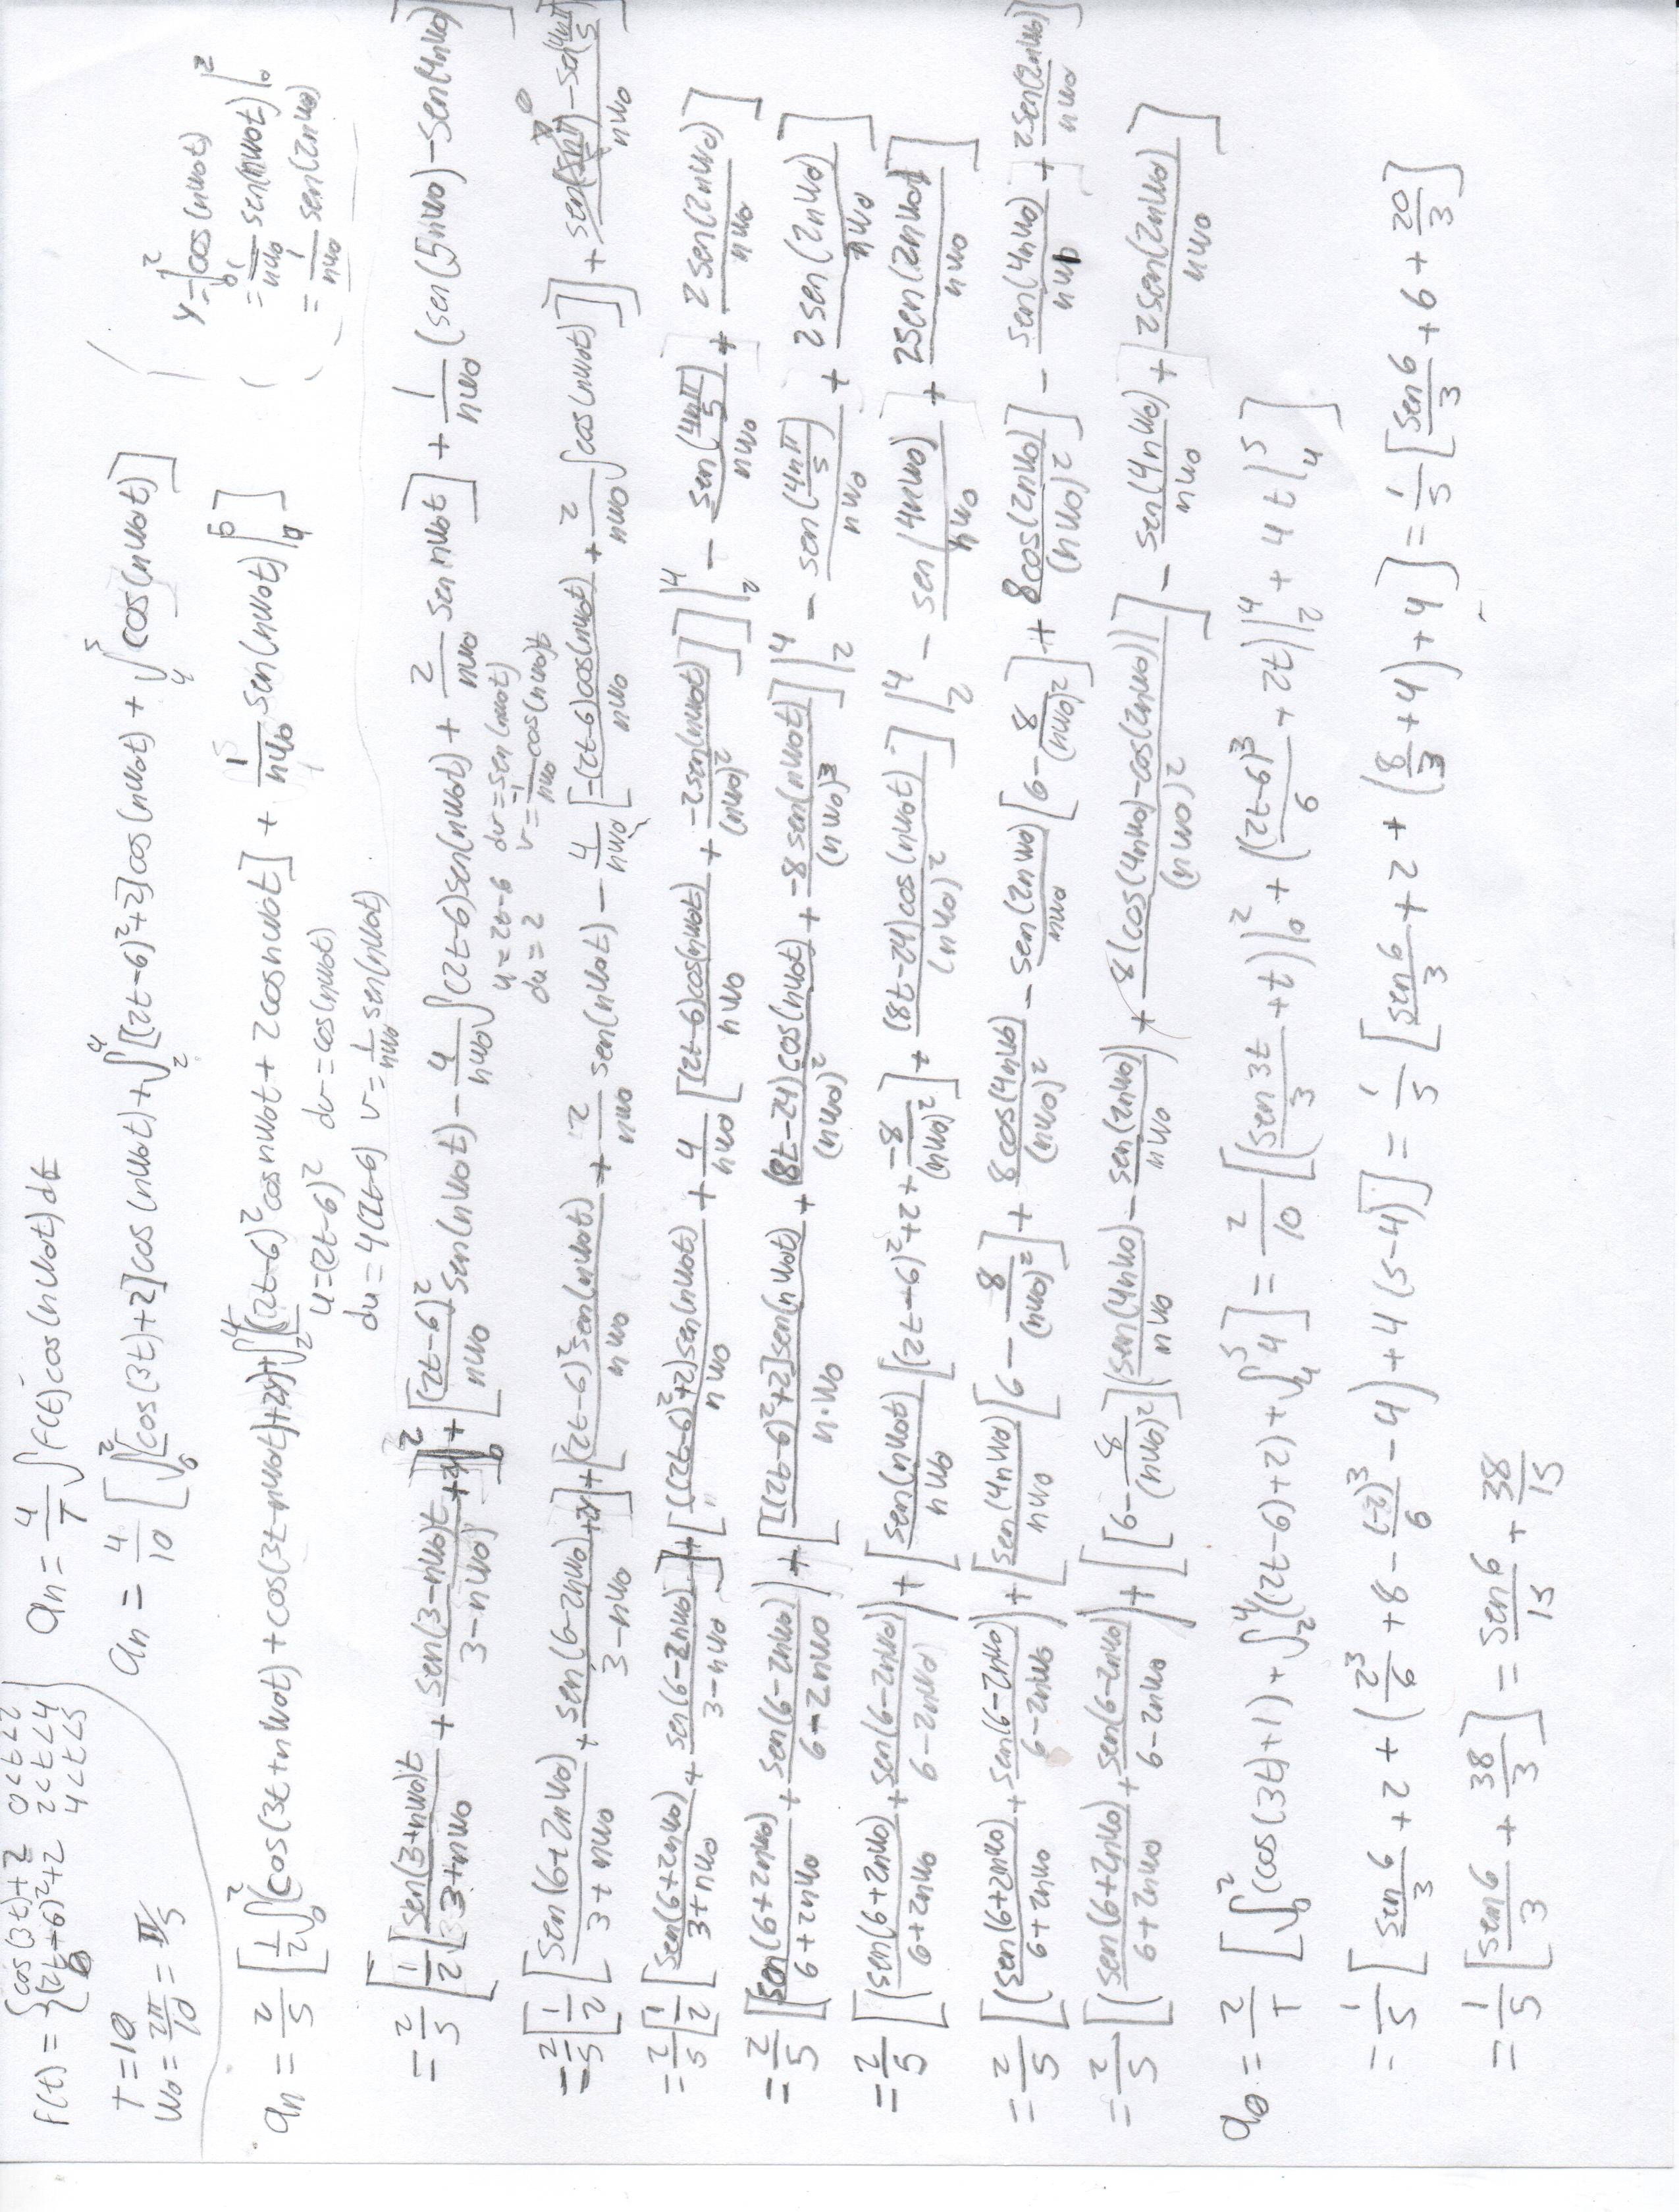 cos(3t)+2 0<t<2
f(t) = { (2t-6)²+2 2<t<4
0 4<t<5
T=10
w₀ = 2π/10 = π/5
aₙ = 4/T ∫ f(t) cos(nw₀t) dt
aₙ = 4/10 [ ∫₀² [cos(3t)+2] cos(nw₀t) + ∫₂⁴ [(2t-6)²+2] cos(nw₀t) + ∫₄⁵ cos(nw₀t) ]
y = ∫₀² cos(nw₀t)
= 1/nw₀ sen(nw₀t) |₀²
= 1/nw₀ sen(2nw₀)
aₙ = 2/5 [ 1/2 ∫₀² (cos(3t+nw₀t) + cos(3t-nw₀t)+2y) + ∫₂⁴ [(2t-6)² cos nw₀t + 2cos nw₀t] + 1/nw₀ sen(nw₀t) |₄⁵ ]
u=(2t-6)² dv=cos(nw₀t)
du=4(2t-6) v=1/nw₀ sen(nw₀t)
= 2/5 [ 1/2 [ sen(3+nw₀)t/3+nw₀ + sen(3-nw₀)t/3-nw₀ +2y ] |₀² + [ (2t-6)²/nw₀ sen(nw₀t) - 4/nw₀ ∫(2t-6)sen(nw₀t) + 2/nw₀ sen nw₀t ] + 1/nw₀ (sen(5nw₀) - sen(4nw₀) ]
u=2t-6 dv=sen(nw₀t)
du=2 v=-1/nw₀ cos(nw₀)t
= 2/5 [ 1/2 [ sen(6+2nw₀)/3+nw₀ + sen(6-2nw₀)/3-nw₀ +2y ] + [ (2t-6)² sen(nw₀t)/nw₀ + 2/nw₀ sen(nw₀t) - 4/nw₀ [ -(2t-6)cos(nw₀t)/nw₀ + 2/nw₀ ∫cos(nw₀t) ] ] + sen(5nπ/5)↗0 - sen(4nπ/5)/nw₀ ]
= 2/5 [ 1/2 [ sen(6+2nw₀)/3+nw₀ + sen(6-2nw₀)/3-nw₀ ] + [ ((2t-6)²+2)sen(nw₀t)/nw₀ + 4/nw₀ [ (2t-6)cos(nw₀t)/nw₀ + -2sen(nw₀t)/(nw₀)² ] ] |₂⁴ - sen(4nπ/5)/nw₀ + 2sen(2nw₀)/nw₀ ]
= 2/5 [ (sen(6+2nw₀)/6+2nw₀ + sen(6-2nw₀)/6-2nw₀) + [ [(2t-6)²+2]sen(nw₀t)/n·w₀ + (8t-24)cos(nw₀t)/(nw₀)² + -8sen(nw₀t)/(nw₀)³ ] |₂⁴ - sen(4nπ/5)/nw₀ + 2sen(2nw₀)/nw₀ ]
= 2/5 [ (sen(6+2nw₀)/6+2nw₀ + sen(6-2nw₀)/6-2nw₀) + [ sen(nw₀t)/nw₀ [(2t-6)²+2+ -8/(nw₀)²] + (8t-24)cos(nw₀t)/(nw₀)² ] |₂⁴ - sen(4nw₀)/nw₀ + 2sen(2nw₀t)/nw₀ ]
= 2/5 [ (sen(6+2nw₀)/6+2nw₀ + sen(6-2nw₀)/6-2nw₀) + [ sen(4nw₀)/nw₀ [6 - 8/(nw₀)²] + 8cos(4nw₀)/(nw₀)² - sen(2nw₀)/nw₀ [6 - 8/(nw₀)²] + 8cos(2nw₀)/(nw₀)² ] - sen(4nw₀)/nw₀ + 2sen(2nw₀)/nw₀ ]
= 2/5 [ (sen(6+2nw₀)/6+2nw₀ + sen(6-2nw₀)/6-2nw₀) + [ [6 - 8/(nw₀)²] (sen(4nw₀)/nw₀ - sen(2nw₀)/nw₀) + 8(cos(4nw₀)-cos(2nw₀))/(nw₀)² ] - sen(4nw₀)/nw₀ + 2sen(2nw₀)/nw₀ ]
a₀ = 2/T [ ∫₀² (cos(3t)+1) + ∫₂⁴ ((2t-6)+2) + ∫₄⁵ 4 ] = 2/10 [ (sen 3t/3 + t) |₀² + ((2t-6)³/6 + 2t) |₂⁴ + 4t |₄⁵ ]
= 1/5 [ sen 6/3 + 2 + (2³/6 + 8 - (-2)³/6 - 4) + 4(5-4) ] = 1/5 [ sen 6/3 + 2 + (8/3 + 4) + 4 ] = 1/5 [ sen 6/3 + 6 + 20/3 ]
= 1/5 [ sen 6/3 + 38/3 ] = sen 6/15 + 38/15